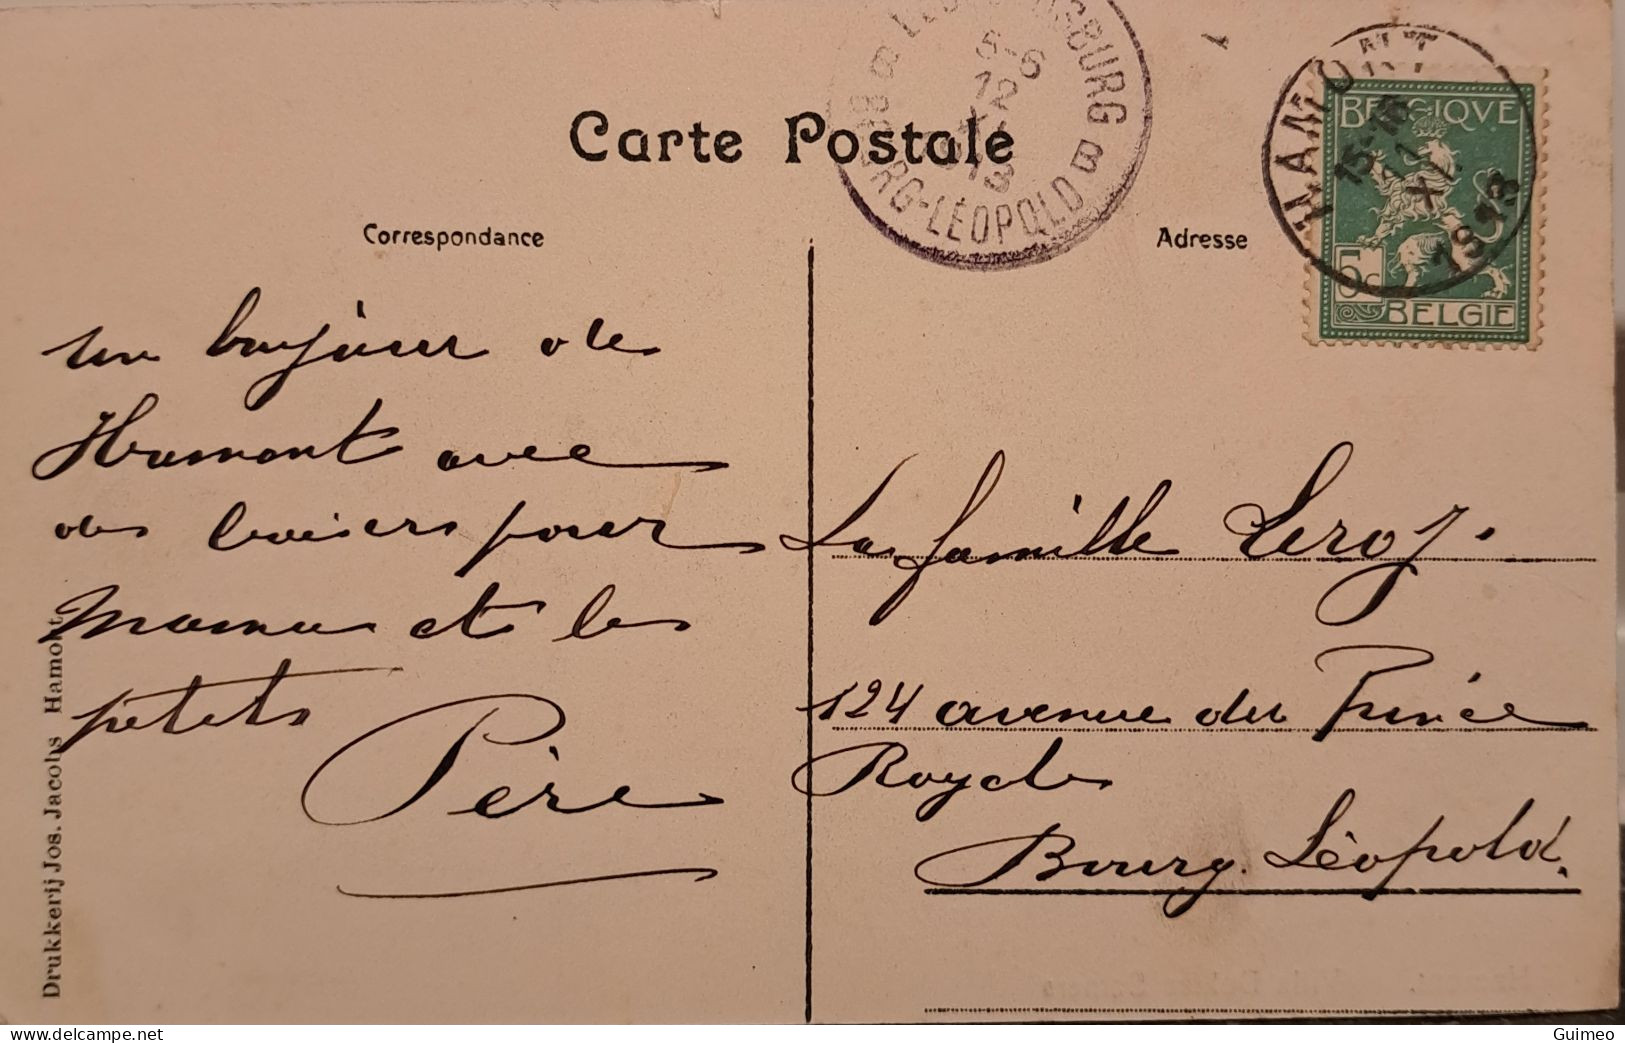 Carte Postale
Correspondance
Adresse
BOURG-LÉOPOLD B
5-6
12
XI
1913
HAMONT
15-16
11
XI
1913
BELGIQVE
5c
BELGIE
un bonjour de
Hamont avec
des baisers pour
Maman et les
petits
Père
La famille Leroy.
124 avenue du Prince
Royal
Bourg. Léopold.
Drukkerij Jos. Jacobs Hamont.
Guimeo